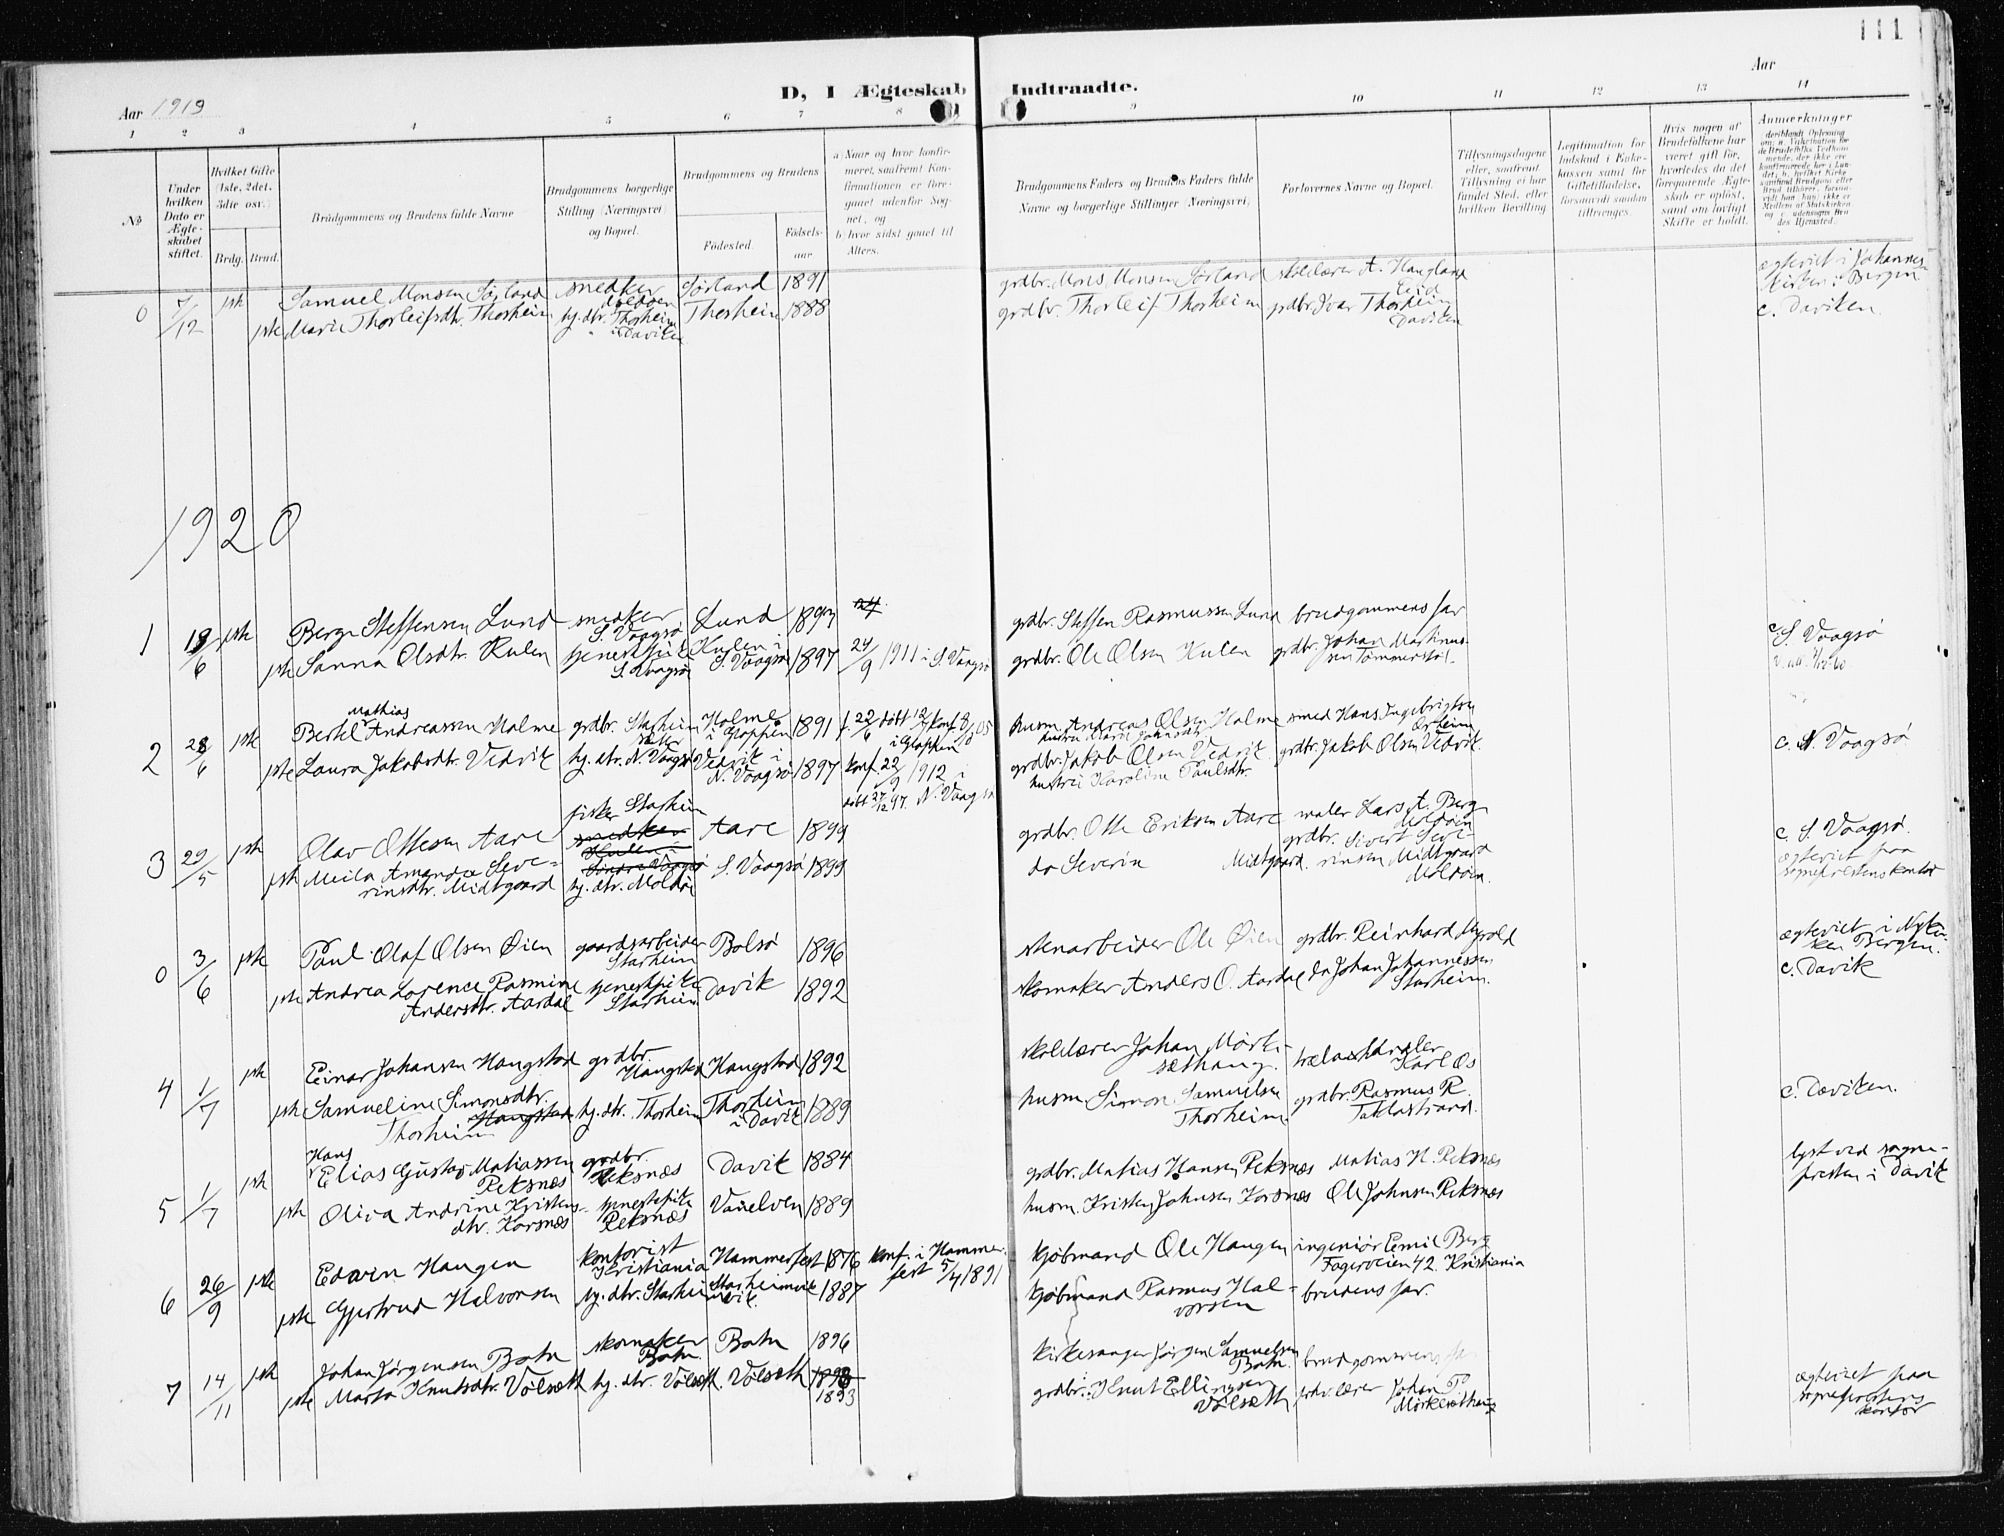 111
D, I Ægteskab Indtraadte.
Aar 1919
Aar
1 2 3 4 5 6 7 8 9 10 11 12 13 14
No
Under hvilken Dato er Ægteskabet stiftet.
Hvilket Gifte (1ste, 2det, 3die osv.)
Brdg. Brud.
Brudgommens og Brudens fulde Navne
Brudgommens borgerlige Stilling (Næringsvei) og Bopæl.
Brudgommens og Brudens
Fødested.
Fødselsaar
a) Naar og hvor konfirmeret, saafremt Konfirmationen er foregaaet udenfor Sognet, og
b) hvor sidst gaaet til Alters.
Brudgommens Faders og Brudens Faders fulde Navne og borgerlige Stillinger (Næringsvei)
Forlovernes Navne og Bopæl.
Tillysningsdagene eller, saafremt Tillysning ei har fundet Sted, efter hvilken Bevilling
Legitimation for Indskud i Enkekassen samt for Giftetilladelse, forsaavidt saadan tiltrænges.
Hvis nogen af Brudefolkene har været gift før, hvorledes da det foregaaende Ægteskab er opløst, samt om lovligt Skifte er holdt.
Anmærkninger
0 7/12 1ste Samuel Monsen Sørland snedker Sørland 1891 grdbr. Mons Monsen Sørland skolelærer A. Haugland Eid ægteviet i Johanneskirken i Bergen
1ste Marie Thorleifsdtr. Thorheim hj. dtr. Thorheim Daviken Thorheim 1888 grdbr. Thorleif Thorheim grdbr. Ivar Thorheim Daviken c. Daviken.
1920
1 18/6 1ste Berge Steffensen Lund snedker S. Vaagsø Lund 1893 grdbr. Steffen Rasmussen Lund brudgommens far c. S. Vaagsø
1ste Sanna Olsdtr. Hulen tjenestpike S. Vaagsø Hulen i S. Vaagsø 1897 24/9 1911 i S. Vaagsø grdbr. Ole Olsen Hulen grdbr. Johan Martinussen Tømmerstøl.
2 28/6 1ste Bertel Mathias Andreassen Holme grdbr. Starheim Holme i Gloppen 1891 f. 22/6 døbt 12/7 konf. 8/10 05 i Gloppen husm. Andreas Olsen Holme smed Hans Ingebrigtsen Ørheim
1ste Laura Jakobsdtr. Vedvik hj. dtr. N. Vaagsø Vedvik i N. Vaagsø 1897 konf. 22/9 1912 i N. Vaagsø døbt 27/12 97. grdbr. Jakob Olsen Vedvik hustru Karoline Paulsdtr. grdbr. Jakob Olsen Vedvik. c. N. Vaagsø
3 29/5 1ste Olav Ottesen Aare fisker Starheim snedker Hulen i Søndre Vaagsø Aare 1899 grdbr. Otte Eriksen Aare maler Lars A. Berg Moldøen c. S. Vaagsø.
1ste Meila Amanda Severinsdtr. Midtgaard hj. dtr. Moldøen S. Vaagsø 1899 do Severin Midtgaard. grdbr. Sivert Severinsen Midtgaard Moldøen. ægteviet paa sogneprestens kontor
0 3/6 1ste Paul Olaf Olsen Øien gaardsarbeider Starheim Bolsø 1896 stenarbeider Ole Øien grdbr. Reinhard Myrold ægteviet i Nykirken Bergen.
1ste Andrea Lorence Rasmine Andersdtr. Aardal tjenestpike Starheim Davik 1892 skomaker Anders O. Aardal do Johan Johannessen Starheim. c. Davik
4 1/7 1ste Einar Johansen Haugstad grdbr. Haugstad Haugstad 1892 skolelærer Johan Mørkesethaug. trælasthandler Karl Os
1ste Samueline Simonsdtr. Haugstad Thorheim hj. dtr. Thorheim Thorheim i Davik 1889 husm. Simon Samuelsen Thorheim grdbr. Rasmus R. Taklostrand. c. Daviken.
5 1/7 1ste Hans Elias Gustav Matiassen Reksnæs grdbr. Reksnæs Davik 1884 grdbr. Matias Hansen Reksnæs Matias H. Reksnæs lyst ved sognepresten i Davik
1ste Oliva Andrine Kristensdtr. Korsnæs tjenestepike Reksnæs Vanelven 1889 husm. Kristen Johnsen Korsnæs Ole Johnsen Reksnæs
6 26/9 1ste Edwin Haugen kontorist Kristiania Hammerfest 1876 konf. i Hammerfest 5/4 1891 kjøbmand Ole Haugen ingeniør Emil Berg Fagerveien 42 Kristiania
1ste Gjertrud Halvorsen hj. dtr. Starheim Starheimvik 1887 kjøbmand Rasmus Halvorsen brudens far.
7 14/11 1ste Johan Jørgensen Botn skomaker Botn. Botn 1896 kirkesanger Jørgen Samuelsen Botn. brudgommens far
1ste Marta Knutsdtr. Vølsæth hj. dtr. Vølsæth. Vølsæth 1898 1893 grdbr. Knut Ellingsen Vølsæth Johan P. Mørkesethaug ægteviet paa sogneprestens kontor